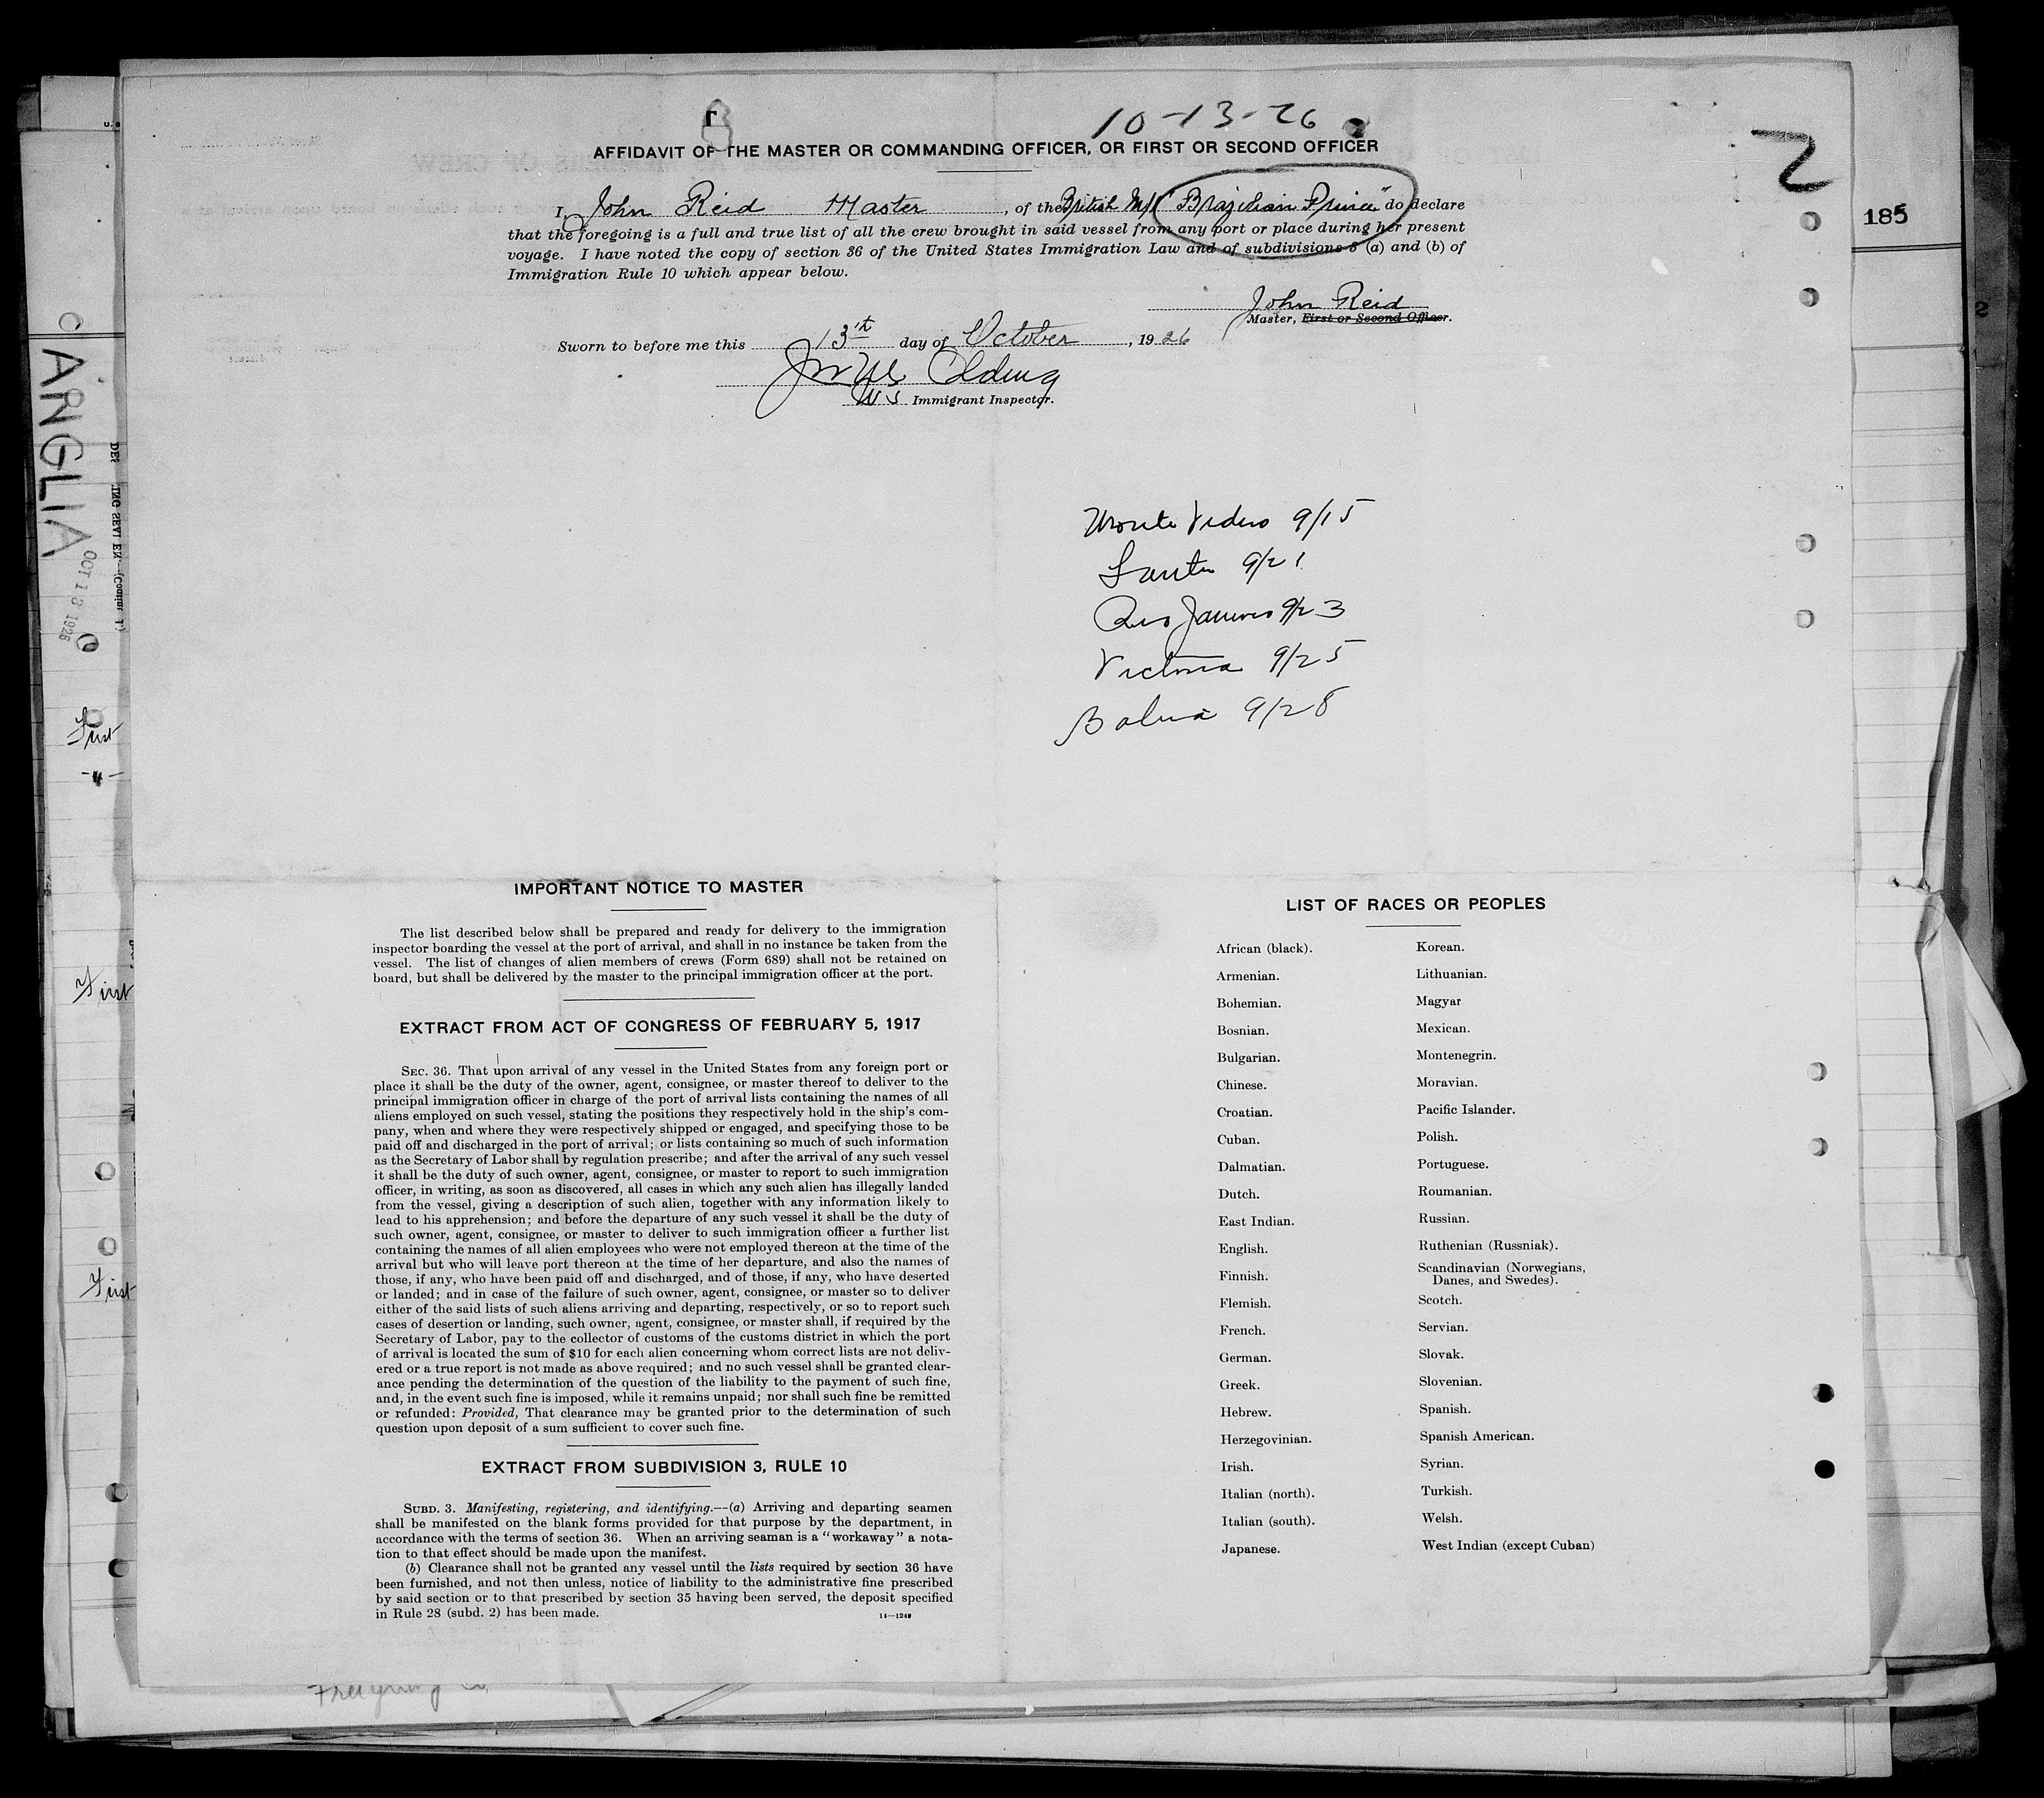 10-13-26
2
AFFIDAVIT OF THE MASTER OR COMMANDING OFFICER, OR FIRST OR SECOND OFFICER
I, John Reid Master, of the British M/V "Brazilian Prince" do declare
that the foregoing is a full and true list of all the crew brought in said vessel from any port or place during her present
voyage. I have noted the copy of section 36 of the United States Immigration Law and of subdivisions 3 (a) and (b) of
Immigration Rule 10 which appear below.
John Reid
Master, First or Second Officer.
Sworn to before me this 13th day of October, 1926
Immigrant Inspector.
185
2
ANGLIA
OCT 13 1926
Monte Video 9/15
Santos 9/21
Rio Janeiro 9/23
Victoria 9/25
Bahia 9/28
First
-4-
First
First
IMPORTANT NOTICE TO MASTER
The list described below shall be prepared and ready for delivery to the immigration
inspector boarding the vessel at the port of arrival, and shall in no instance be taken from the
vessel. The list of changes of alien members of crews (Form 689) shall not be retained on
board, but shall be delivered by the master to the principal immigration officer at the port.
EXTRACT FROM ACT OF CONGRESS OF FEBRUARY 5, 1917
SEC. 36. That upon arrival of any vessel in the United States from any foreign port or
place it shall be the duty of the owner, agent, consignee, or master thereof to deliver to the
principal immigration officer in charge of the port of arrival lists containing the names of all
aliens employed on such vessel, stating the positions they respectively hold in the ship's com-
pany, when and where they were respectively shipped or engaged, and specifying those to be
paid off and discharged in the port of arrival; or lists containing so much of such information
as the Secretary of Labor shall by regulation prescribe; and after the arrival of any such vessel
it shall be the duty of such owner, agent, consignee, or master to report to such immigration
officer, in writing, as soon as discovered, all cases in which any such alien has illegally landed
from the vessel, giving a description of such alien, together with any information likely to
lead to his apprehension; and before the departure of any such vessel it shall be the duty of
such owner, agent, consignee, or master to deliver to such immigration officer a further list
containing the names of all alien employees who were not employed thereon at the time of the
arrival but who will leave port thereon at the time of her departure, and also the names of
those, if any, who have been paid off and discharged, and of those, if any, who have deserted
or landed; and in case of the failure of such owner, agent, consignee, or master so to deliver
either of the said lists of such aliens arriving and departing, respectively, or so to report such
cases of desertion or landing, such owner, agent, consignee, or master shall, if required by the
Secretary of Labor, pay to the collector of customs of the customs district in which the port
of arrival is located the sum of $10 for each alien concerning whom correct lists are not deliv-
ered or a true report is not made as above required; and no such vessel shall be granted clear-
ance pending the determination of the question of the liability to the payment of such fine,
and, in the event such fine is imposed, while it remains unpaid; nor shall such fine be remitted
or refunded: Provided, That clearance may be granted prior to the determination of such
question upon deposit of a sum sufficient to cover such fine.
EXTRACT FROM SUBDIVISION 3, RULE 10
SUBD. 3. Manifesting, registering, and identifying.--(a) Arriving and departing seamen
shall be manifested on the blank forms provided for that purpose by the department, in
accordance with the terms of section 36. When an arriving seaman is a "workaway" a nota-
tion to that effect should be made upon the manifest.
(b) Clearance shall not be granted any vessel until the lists required by section 36 have
been furnished, and not then unless, notice of liability to the administrative fine prescribed
by said section or to that prescribed by section 35 having been served, the deposit specified
in Rule 28 (subd. 2) has been made.
LIST OF RACES OR PEOPLES
African (black).
Armenian.
Bohemian.
Bosnian.
Bulgarian.
Chinese.
Croatian.
Cuban.
Dalmatian.
Dutch.
East Indian.
English.
Finnish.
Flemish.
French.
German.
Greek.
Hebrew.
Herzegovinian.
Irish.
Italian (north).
Italian (south).
Japanese.
Korean.
Lithuanian.
Magyar
Mexican.
Montenegrin.
Moravian.
Pacific Islander.
Polish.
Portuguese.
Roumanian.
Russian.
Ruthenian (Russniak).
Scandinavian (Norwegians,
Danes, and Swedes).
Scotch.
Servian.
Slovak.
Slovenian.
Spanish.
Spanish American.
Syrian.
Turkish.
Welsh.
West Indian (except Cuban)